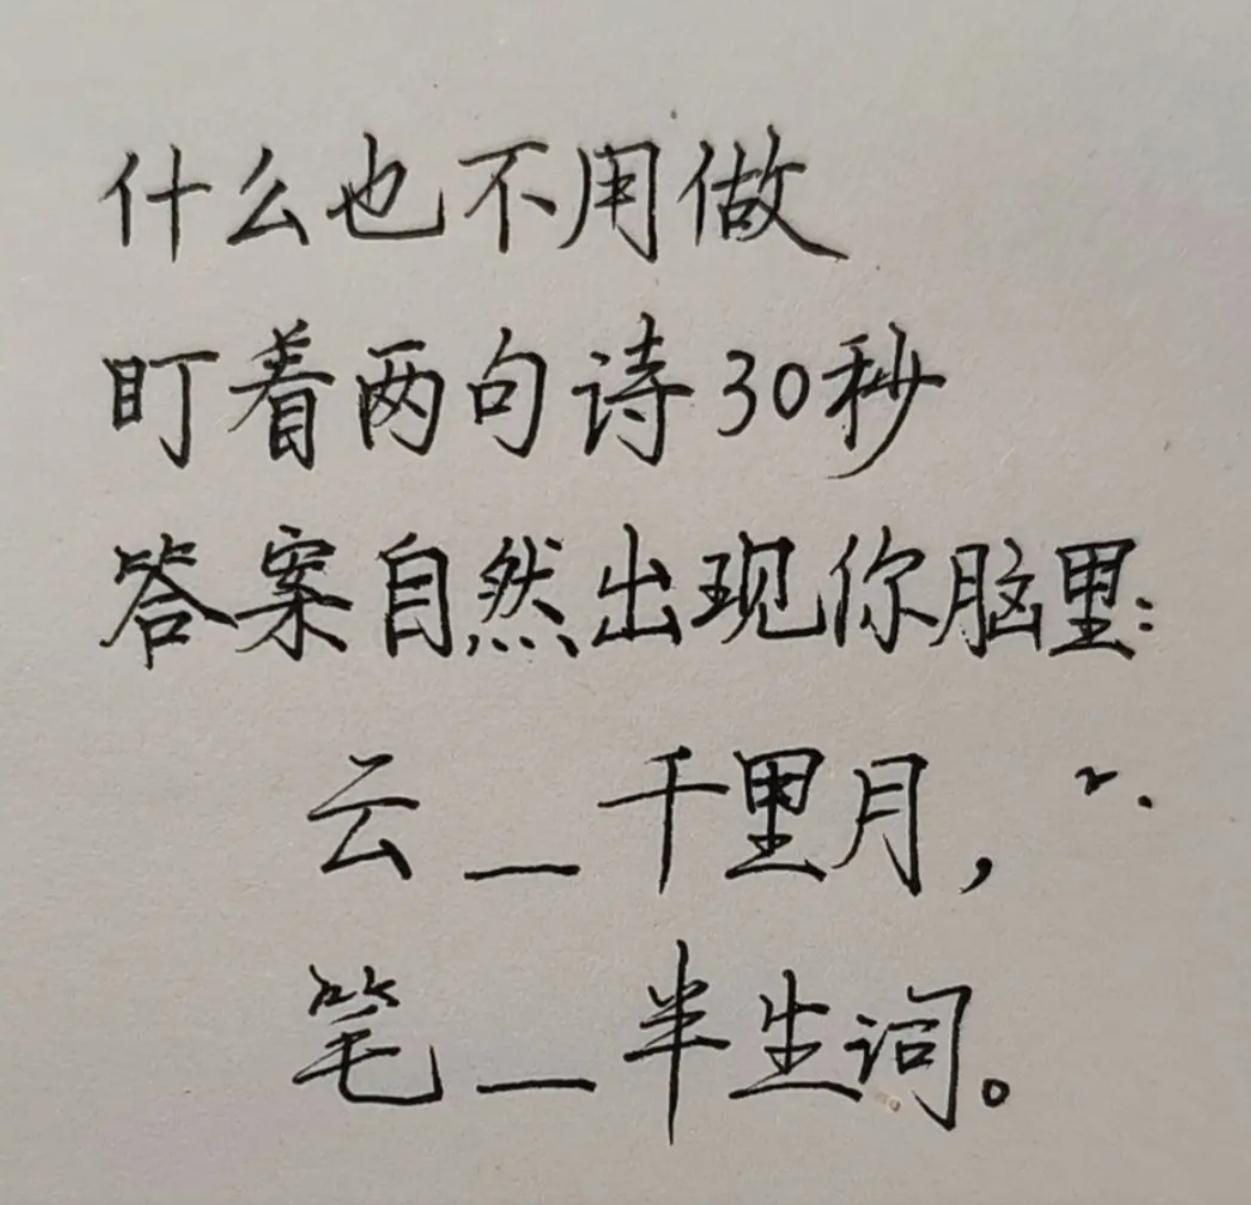 什么也不用做
盯着两句诗30秒
答案自然出现你脑里:
云_千里月,
笔_半生词。